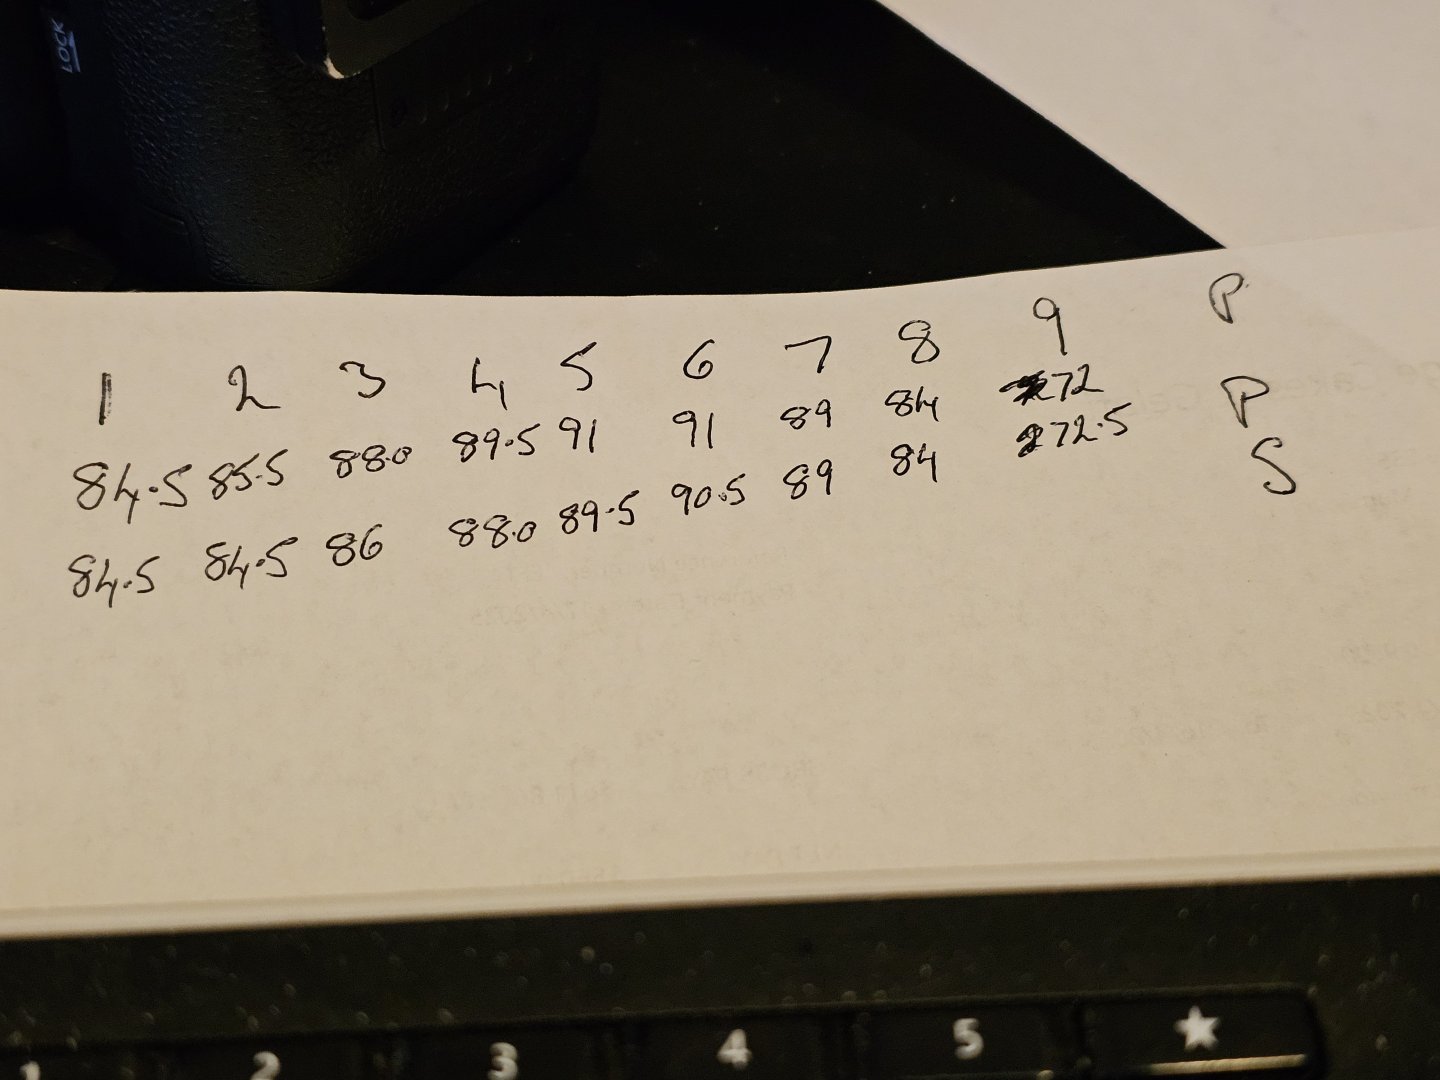 LOCK
1 2 3 4 5 6 7 8 9 P
84.5 85.5 88.0 89.5 91 91 89 84 72 P
84.5 84.5 86 88.0 89.5 90.5 89 84 72.5 S
1 2 3 4 5 ★